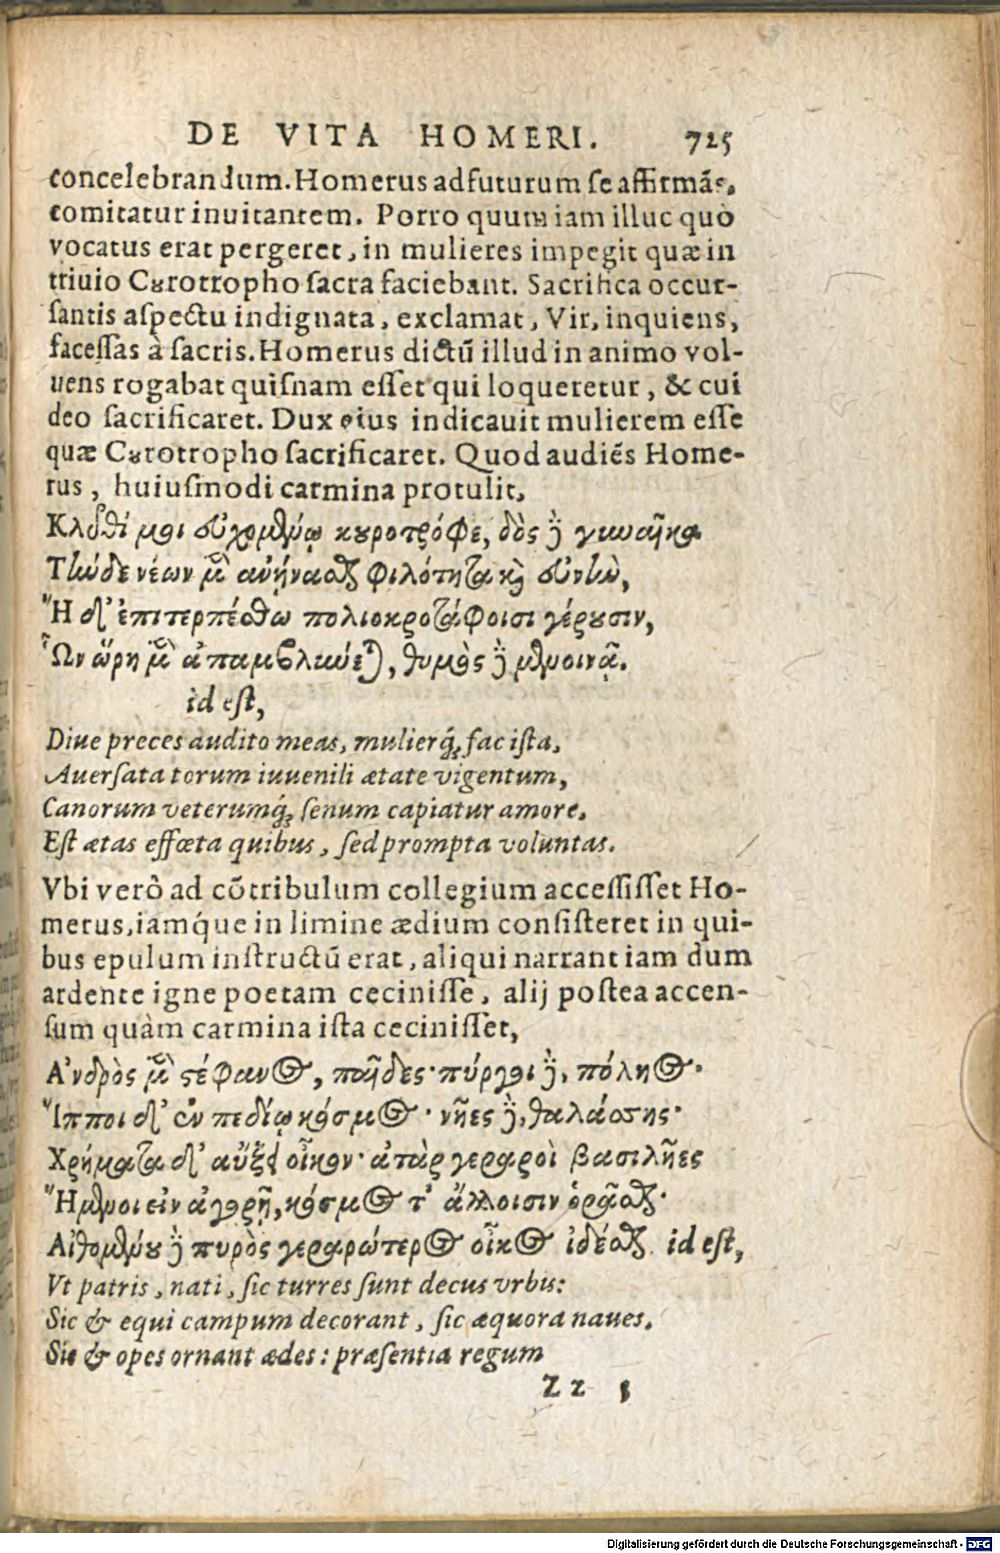 DE VITA HOMERI. 725
concelebrandum. Homerus adfuturum se affirmãs,
comitatur inuitantem. Porro quum iam illuc quò
vocatus erat pergeret, in mulieres impegit quæ in
triuio Cȣrotropho sacra faciebant. Sacrifica occur-
santis aspectu indignata, exclamat, Vir, inquiens,
facessas à sacris. Homerus dictũ illud in animo vol-
uens rogabat quisnam esset qui loqueretur, & cui
deo sacrificaret. Dux eius indicauit mulierem esse
quæ Cȣrotropho sacrificaret. Quod audiẽs Home-
rus, huiusmodi carmina protulit,
Κλῦθί μοι εὐχομένῳ κȣροτρόφε, δὸς δὲ γυναῖκα
Τὼδε νέων μὲν ἀνήναοθαι φιλότητα καὶ εὐνὼ,
Ἢ δ' ἐπιτερπέσθω πολιοκροτάφοισι γέρȣσιν,
Ὧν ὥρη μὲν ἀπαμβλύνεται, θυμὸς δὲ μενοινᾷ.
id est,
Diue preces audito meas, mulierq́; fac ista,
Auersata torum iuuenili ætate vigentum,
Canorum veterumq́; senum capiatur amore,
Est ætas effœta quibus, sed prompta voluntas.
Vbi verò ad cõtribulum collegium accessisset Ho-
merus, iamq́ue in limine ædium consisteret in qui-
bus epulum instructũ erat, aliqui narrant iam dum
ardente igne poetam cecinisse, alij postea accen-
sum quàm carmina ista cecinisset,
Ἀνδρὸς μὲν στέφανος, παῖδες· πύργοι δὲ, πόληος·
Ἵπποι δ' ἐν πεδίῳ κόσμος· νῆες δὲ, θαλάσσης·
Χρήματα δ' αὔξει οἶκον· ἀτὰρ γεραροὶ βασιλῆες
Ἥμενοι εἰν ἀγορῇ, κόσμος τ' ἄλλοισιν ὁρᾶσθαι·
Αἰθομένȣ δὲ πυρὸς γεραρώτερος οἶκος ἰδέσθαι. id est,
Vt patris, nati, sic turres sunt decus vrbis:
Sic & equi campum decorant, sic æquora naues.
Sic & opes ornant ædes: præsentia regum
Zz
Digitalisierung gefördert durch die Deutsche Forschungsgemeinschaft - DFG